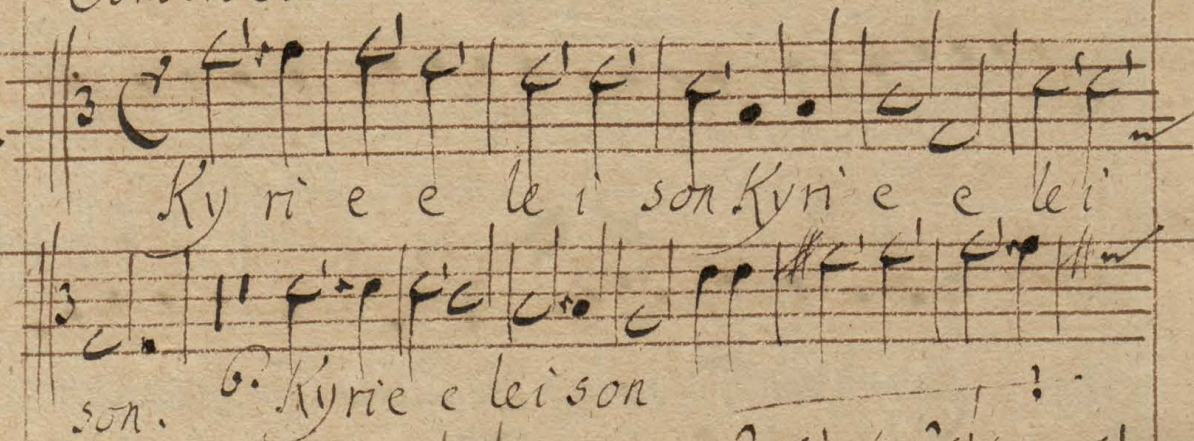 Ky ri e e le i son Kyri e e lei
son. 6. Kyrie e lei son